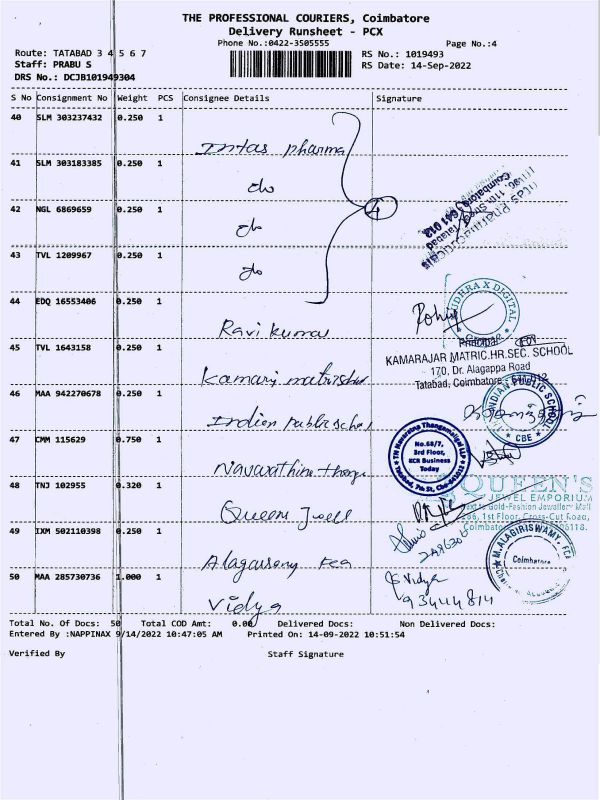 THE PROFESSIONAL COURIERS, Coimbatore
Delivery Runsheet - PCX
Phone No.:0422-3505555
Page No.:4
Route: TATABAD 3 4 5 6 7
RS No.: 1019493
Staff: PRABU S
RS Date: 14-Sep-2022
DRS No.: DCJB101949304
S No Consignment No Weight PCS Consignee Details Signature
40 SLM 303237432 0.250 1
Intas pharma
41 SLM 303183385 0.250 1
do
42 NGL 6869659 0.250 1
4
do
43 TVL 1209967 0.250 1
do
Intas Pharmaceuticals
Tatabad
Coimbatore - 641 012
44 EDQ 16553406 0.250 1
Ravi kumar
RUDHRA X DIGITAL
45 TVL 1643158 0.250 1
Principal
KAMARAJAR MATRIC.HR.SEC. SCHOOL
170, Dr. Alagappa Road
Tatabad, Coimbatore - 641 012
Kamaraj matric
46 MAA 942270678 0.250 1
Indian Public School
INDIAN PUBLIC SCHOOL
CBE
47 CMM 115629 0.750 1
TN Navarathna Thangamaligai LLP
No.68/7,
3rd Floor,
KCR Business
Today
48 TNJ 102955 0.320 1
Queen Jwell
QUEEN'S
JEWEL EMPORIUM
Next to Gold-Fashion Jewellery Mall
1st Floor, Cross-Cut Road,
49 IXM 502110398 0.250 1
M.ALAGIRISWAMY, FCA
Coimbatore
50 MAA 285730736 1.000 1
Vidya
Vidya
Total No. Of Docs: 50 Total COD Amt: 0.00 Delivered Docs: Non Delivered Docs:
Entered By :NAPPINAX 9/14/2022 10:47:05 AM Printed On: 14-09-2022 10:51:54
Verified By Staff Signature